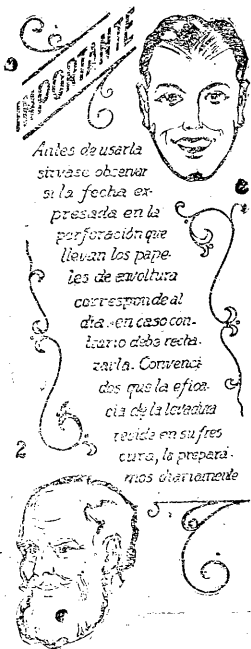 IMPORTANTE
Antes de usarla
sirvase observar
si la fecha ex-
presada en la
perforación que
llevan los pape-
les de envoltura
corresponde al
día. en caso con-
trario debe recha-
zarla. Convenci
dos que la efica-
cia de la levadura
reside en su fres
cura, la prepara-
mos diariamente
2